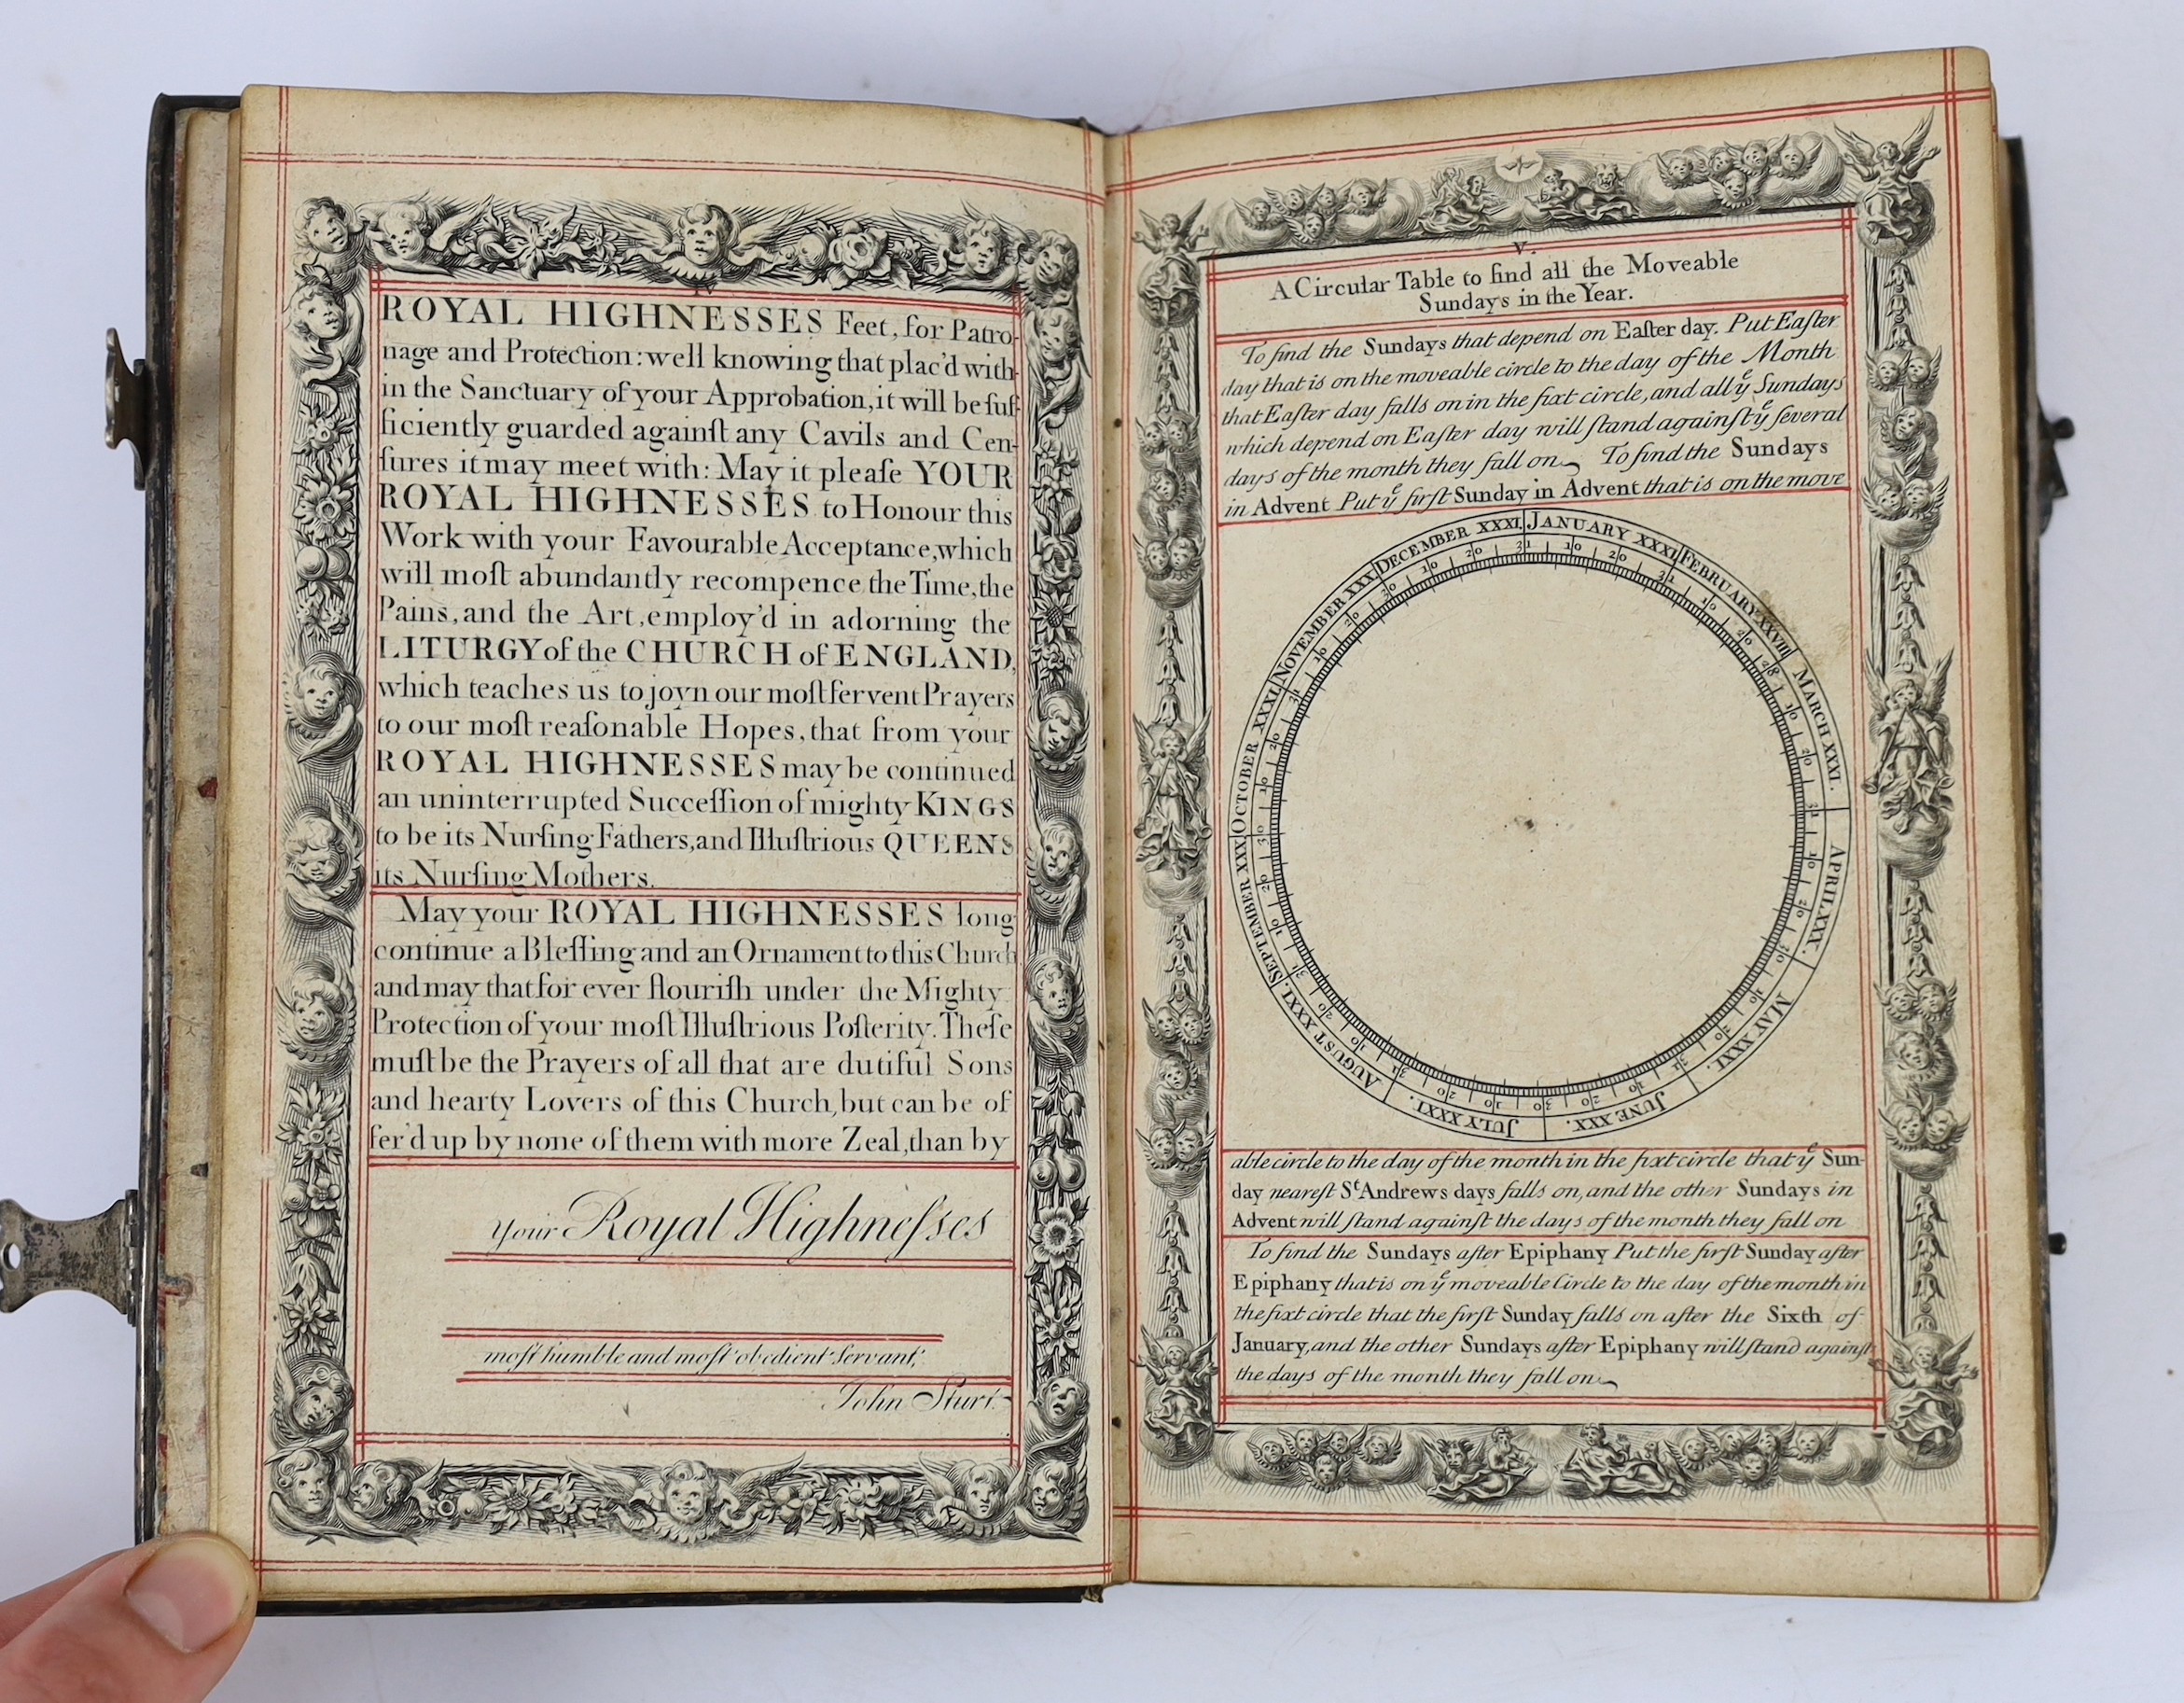 IV
ROYAL HIGHNESSES Feet, for Patro-
nage and Protection: well knowing that plac'd with-
in the Sanctuary of your Approbation, it will be ſuf-
ficiently guarded againſt any Cavils and Cen-
ſures it may meet with: May it pleaſe YOUR
ROYAL HIGHNESSES to Honour this
Work with your Favourable Acceptance, which
will moſt abundantly recompence the Time, the
Pains, and the Art, employ'd in adorning the
LITURGY of the CHURCH of ENGLAND,
which teaches us to joyn our moſt fervent Prayers
to our moſt reaſonable Hopes, that from your
ROYAL HIGHNESSES may be continued
an uninterrupted Succeſſion of mighty KINGS
to be its Nurſing Fathers, and Illuſtrious QUEENS
its Nurſing Mothers.
May your ROYAL HIGHNESSES long
continue a Bleſſing and an Ornament to this Church
and may that for ever flouriſh under the Mighty
Protection of your moſt Illuſtrious Poſterity. Theſe
muſt be the Prayers of all that are dutiful Sons
and hearty Lovers of this Church, but can be of
fer'd up by none of them with more Zeal, than by
Your Royal Highneſses
moſt humble and moſt obedient Servant,
John Sturt.
V.
A Circular Table to find all the Moveable
Sundays in the Year.
To find the Sundays that depend on Eaſter day. Put Eaſter
day that is on the moveable circle to the day of the Month
that Eaſter day falls on in the fixt circle, and all yͤ Sundays
which depend on Eaſter day will ſtand againſt yͤ ſeveral
days of the month they fall on. To find the Sundays
in Advent Put yͤ firſt Sunday in Advent that is on the move
JANUARY XXXI
10 20 31
FEBRUARY XXVIII
10 20 28
MARCH XXXI.
10 20 31
APRIL XXX.
10 20 30
MAY XXXI.
10 20 31
JUNE XXX.
10 20 30
JULY XXXI.
10 20 31
AUGUST XXXI.
10 20 31
SEPTEMBER XXX
10 20 30
OCTOBER XXXI.
10 20 31
NOVEMBER XXX
10 20 30
DECEMBER XXXI.
10 20 31
able circle to the day of the month in the fixt circle that yͤ Sun-
day neareſt Sᵗ Andrews days falls on, and the other Sundays in
Advent will ſtand againſt the days of the month they fall on
To find the Sundays after Epiphany Put the firſt Sunday after
Epiphany that is on yͤ moveable Circle to the day of the month in
the fixt circle that the firſt Sunday falls on after the Sixth of
January, and the other Sundays after Epiphany will ſtand againſt
the days of the month they fall on